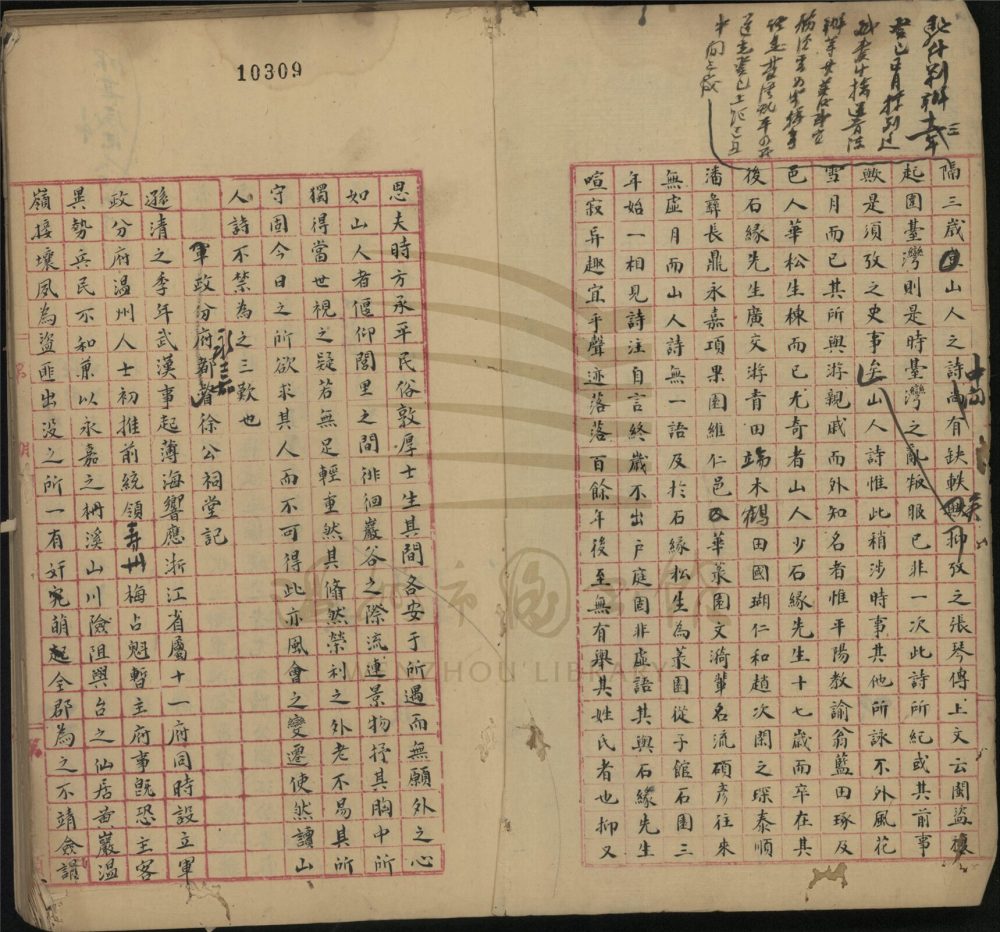 隔三歲山人之詩尚有缺軼抑攷之張琴傳上文云閩盜
起圍臺灣則是時臺灣之亂叛服已非一次此詩所紀或其前事
歟是須攷之史事矣山人詩惟此稍涉時事其他所詠不外風花
雪月而已其所與游親戚而外知名者惟平陽教諭翁藍田琢及
邑人華松生棟而已尤奇者山人少石緣先生十七歲而卒在其
後石緣先生廣交游青田端木鶴田國瑚仁和趙次閑之琛泰順
潘彝長鼎永嘉項果園維仁邑華菉園文漪輩名流碩彥往來
無虛月而山人詩無一語及於石緣松生為菉園從子館石園三
年始一相見詩注自言終歲不出戶庭固非虛語其與石緣先生
喧寂异趣宜乎聲迹落落百餘年後至無有舉其姓氏者也抑又
思夫時方承平民俗敦厚士生其間各安于所遇而無願外之心
如山人者偃仰閭里之間徘徊巖谷之際流連景物抒其胸中所
獨得當世視之疑若無足輕重然其翛然榮利之外老不易其所
守固今日之所欲求其人而不可得此亦風會之變遷使然讀山
人詩不禁為之三歎也
軍政分府都督徐公祠堂記
永嘉
遜清之季年武漢事起薄海響應浙江省屬十一府同時設立軍
政分府溫州人士初推前統領梅占魁暫主府事旣恐主客
異勢兵民不和兼以永嘉之枬溪山川險阻與台之仙居黃巖溫
嶺接壤夙為盜匪出沒之所一有奸宄萌起全郡為之不靖僉謂
10309
WENZHOU LIBRARY